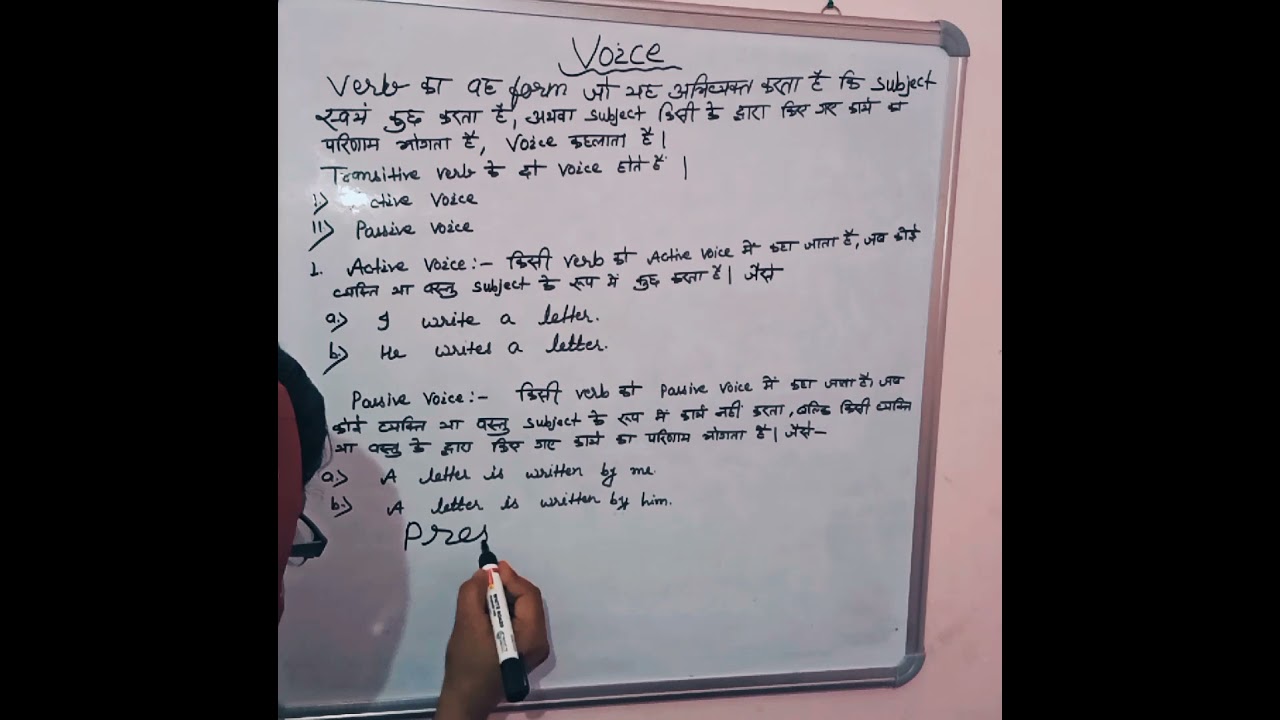 Voice
Verb का वह form जो यह अभिव्यक्त करता है कि subject
स्वयं कुछ करता है, अथवा subject किसी के द्वारा किए गए कार्य का
परिणाम भोगता है, Voice कहलाता है|
Transitive verb के दो voice होते हैं |
i) ctive Voice
ii) Passive voice
1. Active Voice:- किसी verb को Active voice में कहा जाता है, जब कोई
व्यक्ति या वस्तु subject के रूप में कुछ करता है| जैसे
a.) I write a letter.
b.) He writes a letter.
Passive Voice:- किसी verb को Passive voice में कहा जाता है, जब
कोई व्यक्ति या वस्तु subject के रूप में कार्य नहीं करता, बल्कि किसी व्यक्ति
या वस्तु के द्वारा किए गए कार्य का परिणाम भोगता है| जैसे-
a.) A letter is written by me.
b.) A letter is written by him.
Pres